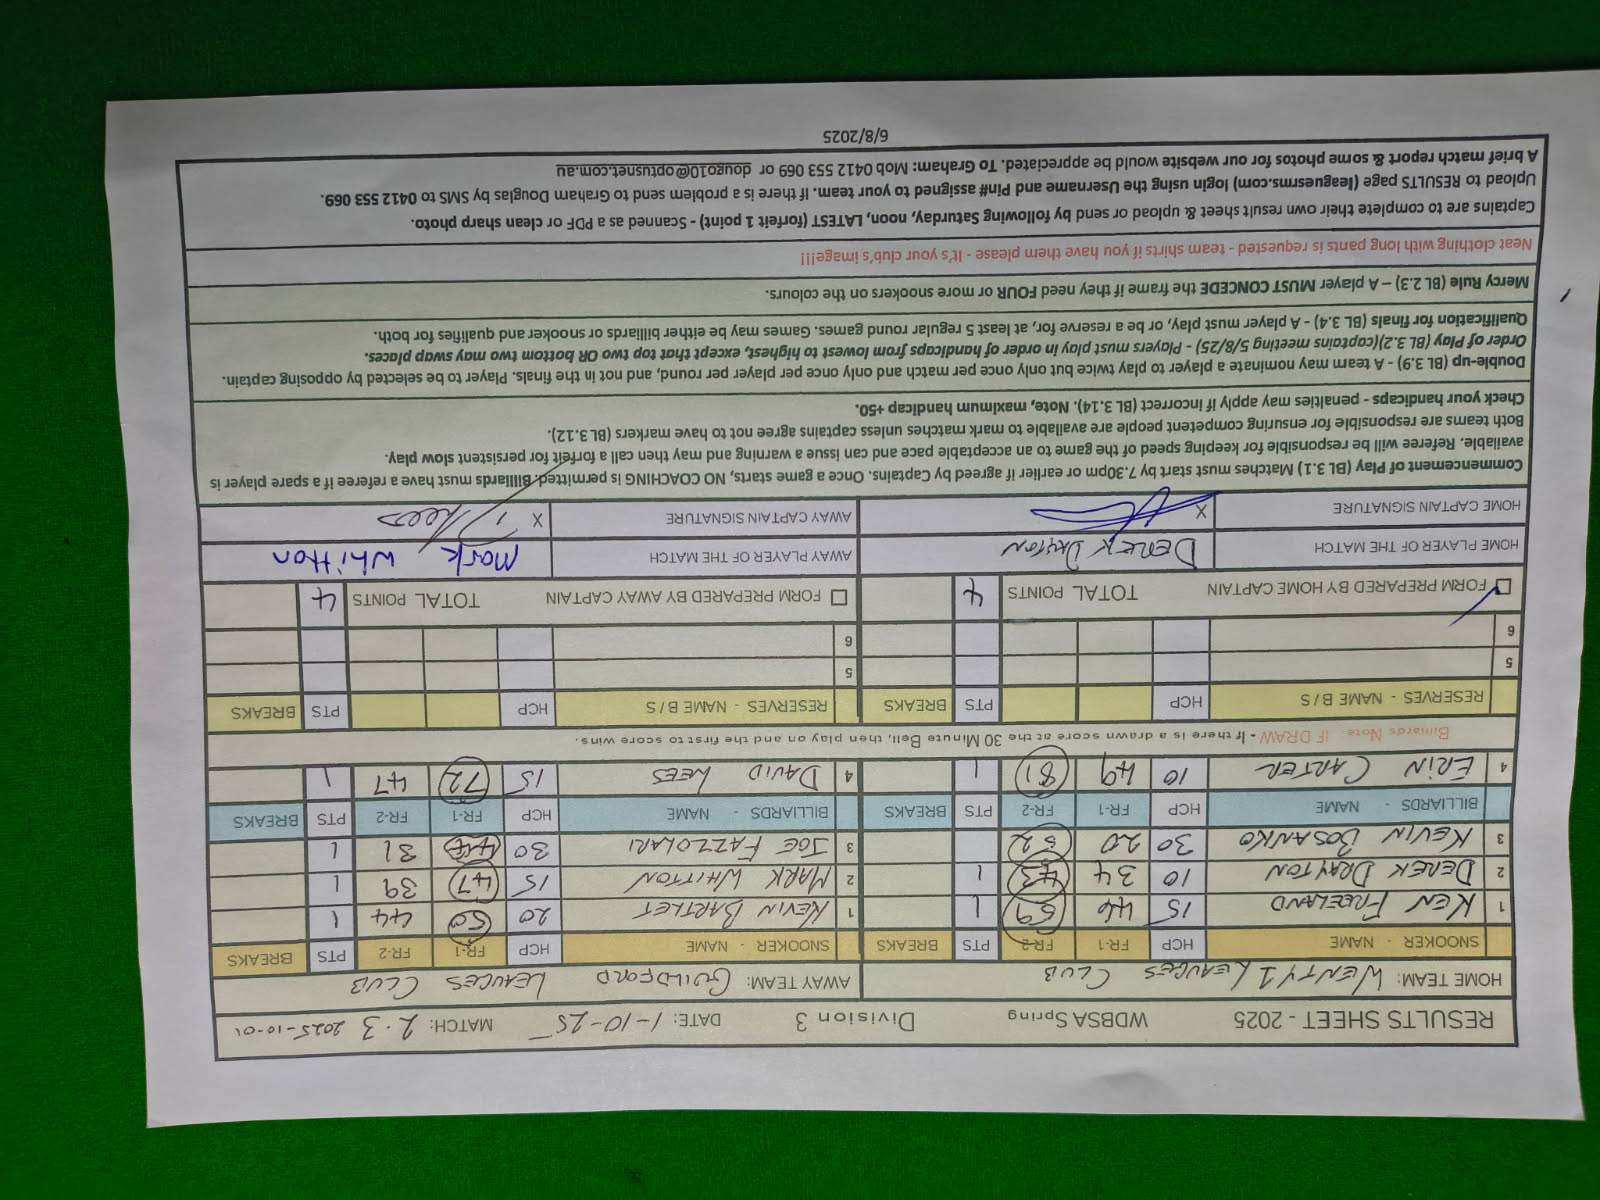 RESULTS SHEET - 2025 WDBSA Spring Division 3 DATE: 1-10-25 MATCH: 2.3 2025-10-01
HOME TEAM: WENTY LEAUGES CLUB AWAY TEAM: GUILDFORD LEAUGES CLUB
SNOOKER - NAME HCP FR-1 FR-2 PTS BREAKS SNOOKER - NAME HCP FR-1 FR-2 PTS BREAKS
1 KEN FREELAND 15 46 59 1 1 KEVIN BARTLET 20 50 44 1
2 DEREK DRAYTON 10 34 43 1 2 MARK WHITTON 15 47 39 1
3 KEVIN BOSANKO 30 20 32 3 JOE FAZZOLARI 30 44 31 1
BILLIARDS - NAME HCP FR-1 FR-2 PTS BREAKS BILLIARDS - NAME HCP FR-1 FR-2 PTS BREAKS
4 ERIN CARTER 10 49 81 1 4 DAVID LEES 15 72 47 1
Billiards Note: IF DRAW - If there is a drawn score at the 30 Minute Bell, then play on and the first to score wins.
RESERVES - NAME B / S HCP PTS BREAKS RESERVES - NAME B / S HCP PTS BREAKS
5 5
6 6
FORM PREPARED BY HOME CAPTAIN TOTAL POINTS 4 FORM PREPARED BY AWAY CAPTAIN TOTAL POINTS 4
HOME PLAYER OF THE MATCH DEREK DRAYTON AWAY PLAYER OF THE MATCH Mark Whitton
HOME CAPTAIN SIGNATURE X AWAY CAPTAIN SIGNATURE X D Lees
Commencement of Play (BL 3.1) Matches must start by 7.30pm or earlier if agreed by Captains. Once a game starts, NO COACHING is permitted. Billiards must have a referee if a spare player is
available. Referee will be responsible for keeping speed of the game to an acceptable pace and can issue a warning and may then call a forfeit for persistent slow play.
Both teams are responsible for ensuring competent people are available to mark matches unless captains agree not to have markers (BL 3.12).
Check your handicaps - penalties may apply if incorrect (BL 3.14). Note, maximum handicap +50.
Double-up (BL 3.9) - A team may nominate a player to play twice but only once per match and only once per player per round, and not in the finals. Player to be selected by opposing captain.
Order of Play (BL 3.2)(captains meeting 5/8/25) - Players must play in order of handicaps from lowest to highest, except that top two OR bottom two may swap places.
Qualification for finals (BL 3.4) - A player must play, or be a reserve for, at least 5 regular round games. Games may be either billiards or snooker and qualifies for both.
Mercy Rule (BL 2.3) – A player MUST CONCEDE the frame if they need FOUR or more snookers on the colours.
Neat clothing with long pants is requested - team shirts if you have them please - It's your club's image!!!
Captains are to complete their own result sheet & upload or send by following Saturday, noon, LATEST (forfeit 1 point) - Scanned as a PDF or clean sharp photo.
Upload to RESULTS page (leaguesrms.com) login using the Username and Pin# assigned to your team. If there is a problem send to Graham Douglas by SMS to 0412 553 069.
A brief match report & some photos for our website would be appreciated. To Graham: Mob 0412 553 069 or dougo10@optusnet.com.au
6/8/2025